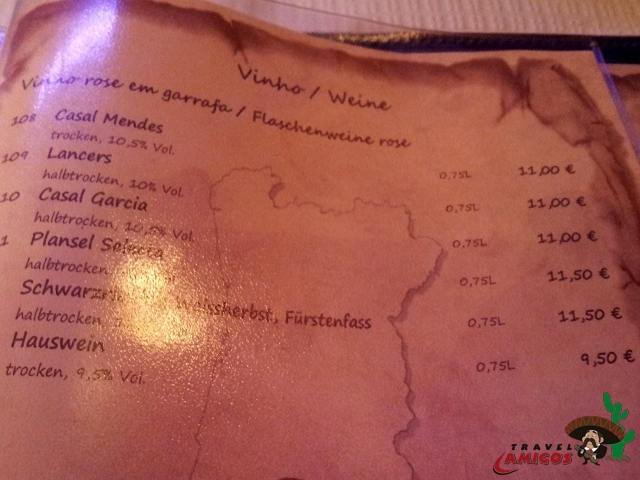 Vinho / Weine
Vinho rose em garrafa / Flaschenweine rose
108 Casal Mendes 0,75L 11,00 €
trocken, 10,5% Vol.
109 Lancers 0,75L 11,00 €
halbtrocken, 10% Vol.
10 Casal Garcia 0,75L 11,00 €
halbtrocken, 10,5% Vol.
1 Plansel Selecta 0,75L 11,50 €
halbtrocken,
Weissherbst, Fürstenfass 0,75L 11,50 €
halbtrocken,
Hauswein 0,75L 9,50 €
trocken, 9,5% Vol.
TRAVEL
AMIGOS